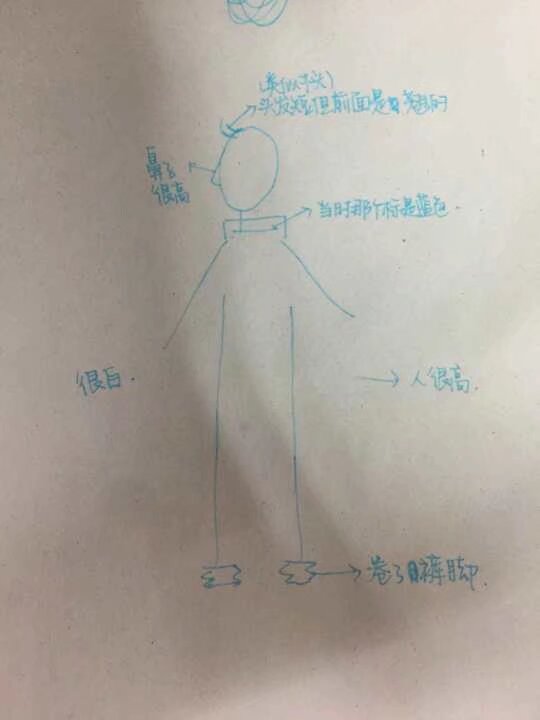 (类似平头)
头发短但前面是翘的
鼻子
很高
当时那个标是蓝色.
很白.
人很高.
卷了裤脚.